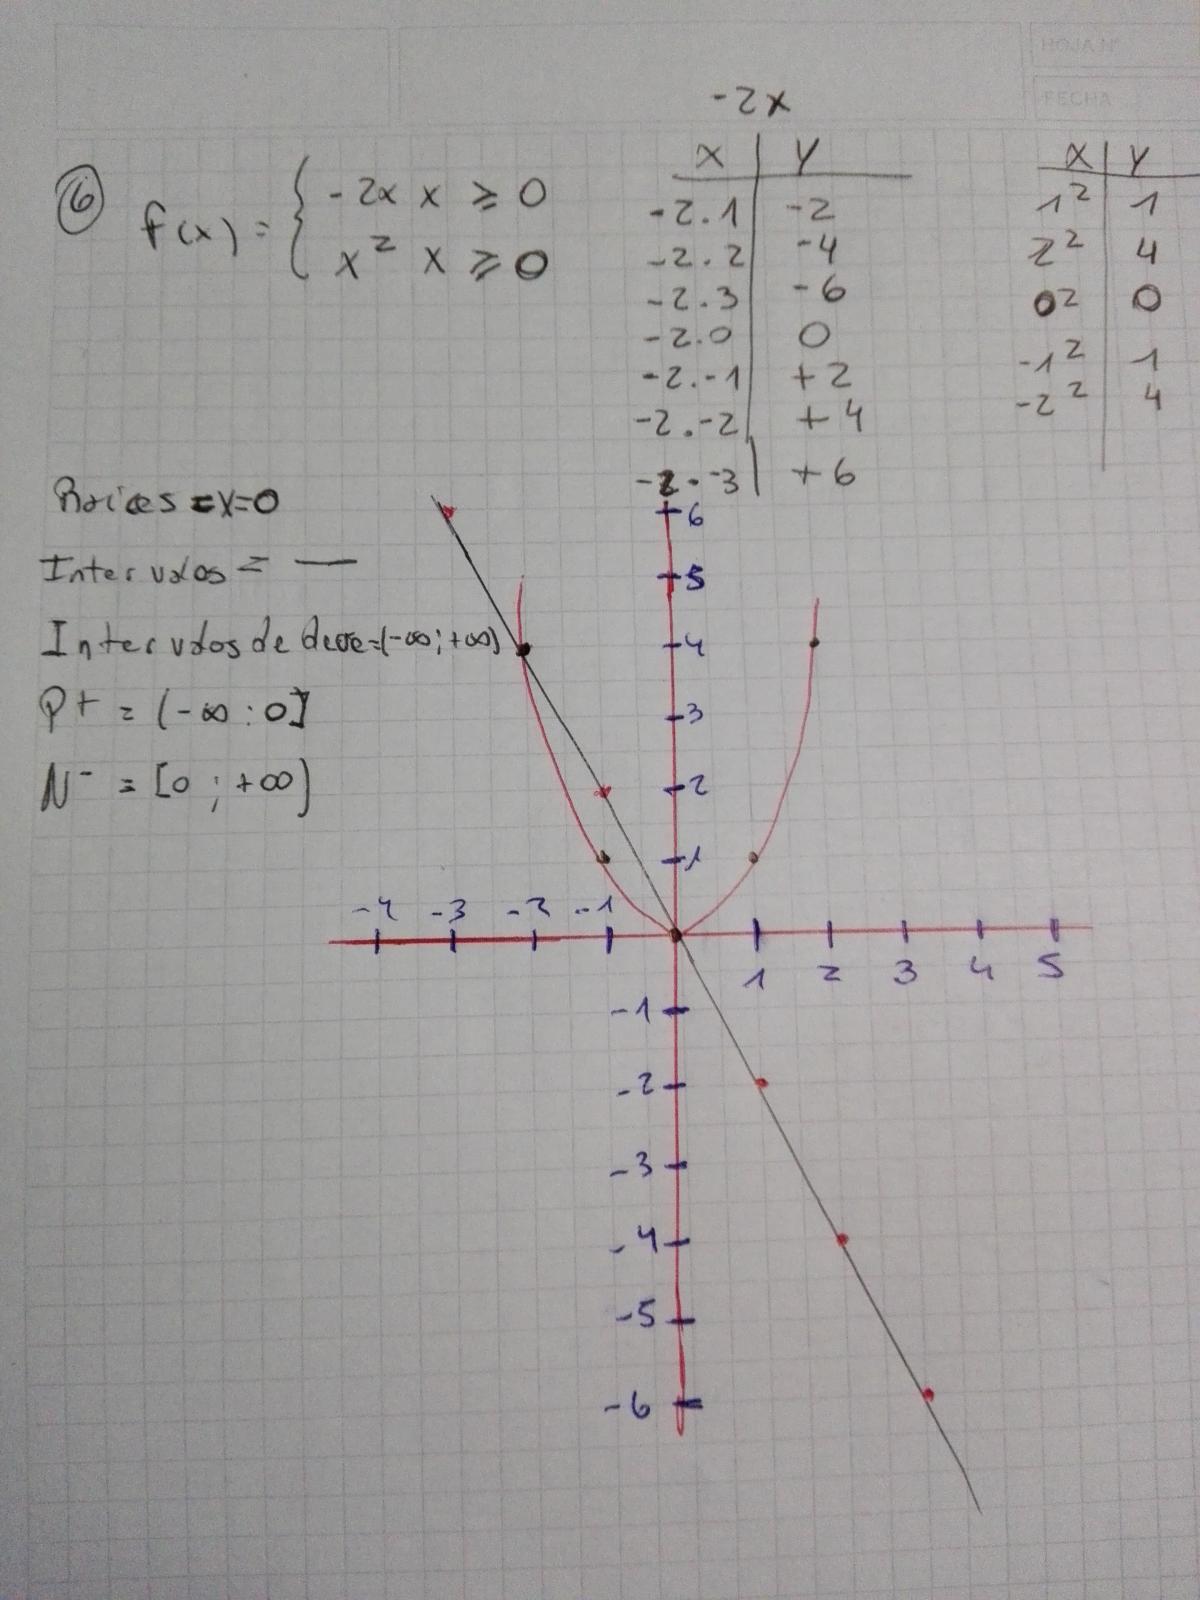 HOJA N°
FECHA
6 f(x) = { -2x x ≥ 0
x² x ≥ 0
-2x
x | y
-2.1 | -2
-2.2 | -4
-2.3 | -6
-2.0 | 0
-2.-1 | +2
-2.-2 | +4
-2.-3 | +6
x | y
1² | 1
2² | 4
0² | 0
-1² | 1
-2² | 4
Raices = x=0
Intervalos = —
Intervalos de decre=(-∞;+∞)
P+ = (-∞:0]
N- = [0;+∞)
6
5
4
3
2
1
-4 -3 -2 -1
1 2 3 4 5
-1
-2
-3
-4
-5
-6